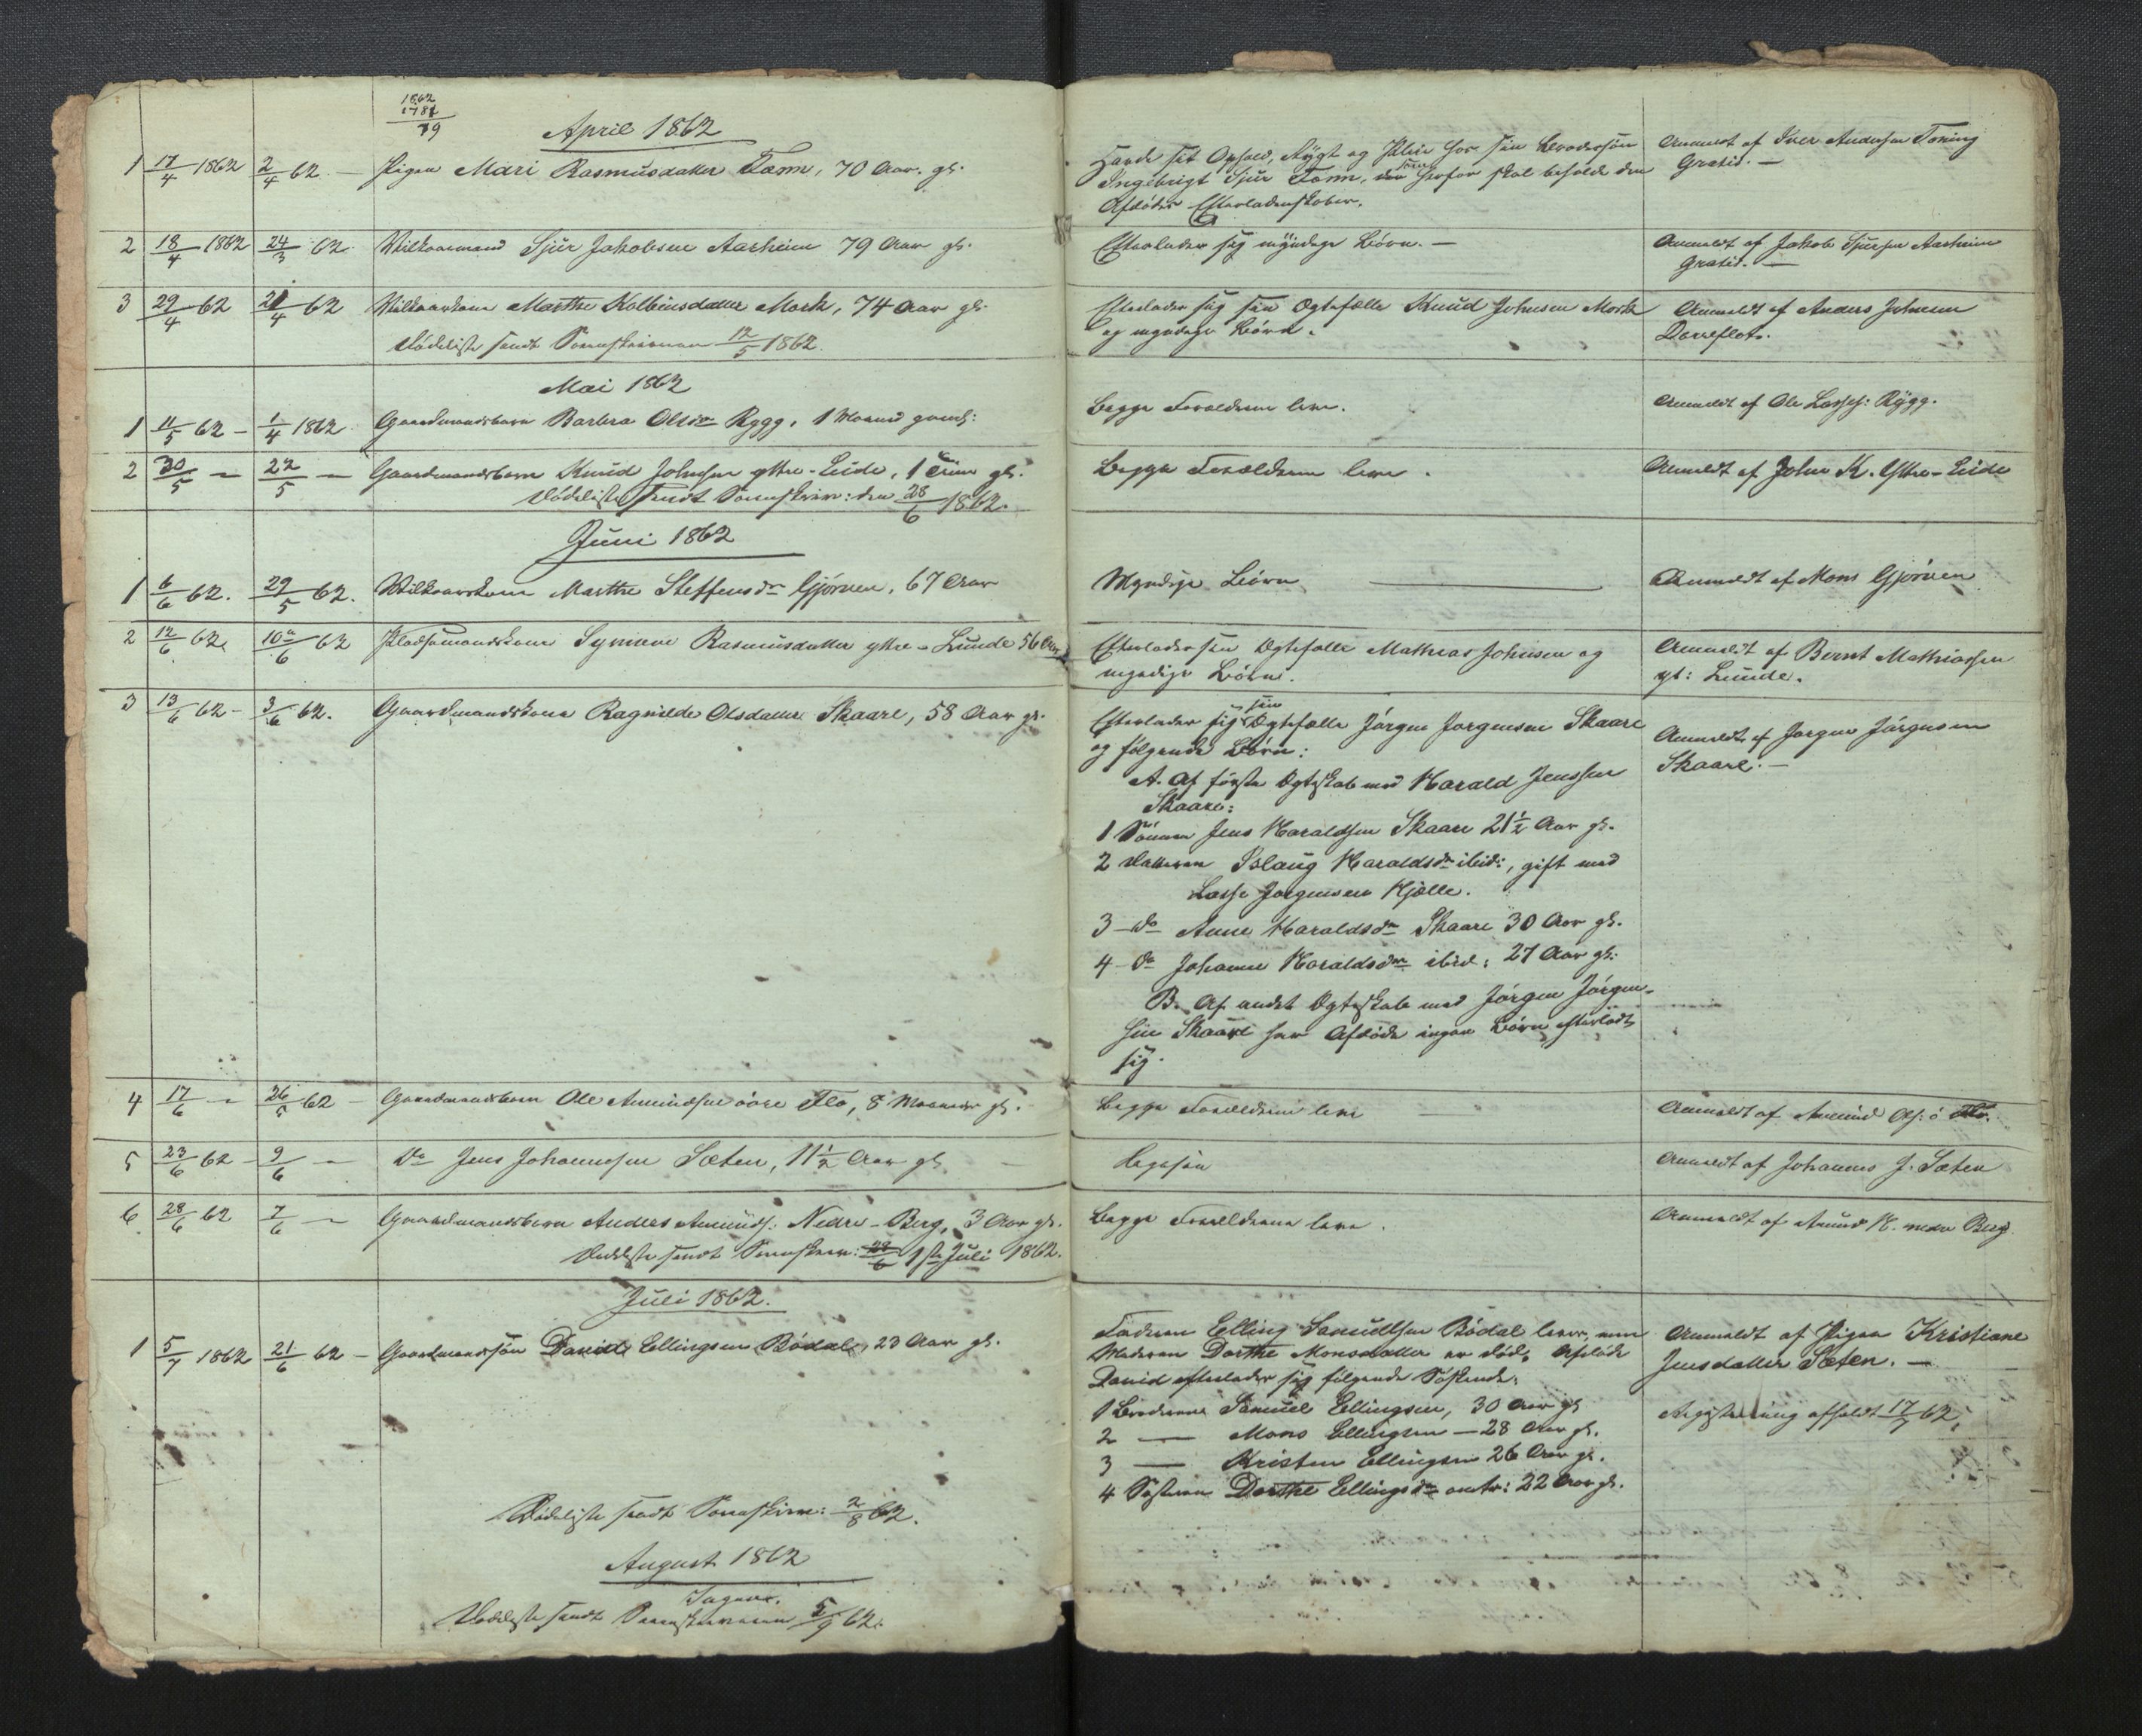 1862
1781
79
April 1862
1 17/4 1862 2/4 62. — Pigen Mari Rasmusdatter Tonn, 70 Aar. gl.
Havde sit Ophold, Røgt og Pleie hos sin Brodersøn
Ingebrigt Sjur Tonn, som herfor skal beholde den
Afdødes Efterladenskaber.
Anmeldt af Iver Andersen Toning
Gratis. —
2 18/4 1862 24/3 62. Vilkaarmand Sjur Jakobsen Aarheim 79 Aar gl.
Efterlader sig myndige Børn. —
Anmeldt af Jakob Sjursen Aarheim
Gratis. —
3 29/4 62 21/4 62 Vilkaarkone Marthe Kolbeinsdatter Mork, 74 Aar gl.
Dødsliste sendt Sorenskriveren 12/5 1862.
Efterlader sig sin Ægtefælle Knud Johnsen Mork
og myndige Børn.
Anmeldt af Anders Johnsen
Dorreflot.
Mai 1862
1 11/5 62 — 1/4 1862. Gaardmandsbarn Barbra Olsdr Rygg, 1 Maaned gaml:
Begge Forældrene leve.
Anmeldt af Ole Lasses: Rygg.
2 30/5 — 22/5 — Gaardmandsbarn Knud Johnsen ytre-Eide, 1 Time gl.
Dødsliste sendt Sorenskriv: den 28/6 1862.
Begge Forældrene leve.
Anmeldt af John K. Ytre-Eide
Juni 1862
1 6/6 62. 29/5 62. Vilkaarskone Marthe Steffensdr Gjørven, 67 Aar
Myndige Børn
Anmeldt af Mons Gjørven
2 12/6 62. 10/6 62 Pladsemandskone Synneve Rasmusdatter ytre-Lunde 56 Aar
Efterlader sin Ægtefælle Mathias Johnsen og
myndige Børn.
Anmeldt af Bernt Mathiassen
yt: Lunde.
3 13/6 62 — 3/6 62. Gaardmandskone Ragnilde Olsdatter Skaare, 58 Aar gl.
Efterlader sig sin Ægtefælle Jørgen Jørgensen Skaare
og følgende Børn:
A. Af første Ægteskab med Harald Jenssen
Skaare:
1 Sønnen Jens Haraldsen Skaare 21½ Aar gl.
2 Datteren Islaug Haraldsdr ibid:, gift med
Lasse Jørgensen Hjelle.
3 — do Anne Haraldsdr Skaare 30 Aar gl.
4 — do Johanne Haraldsdr ibid: 27 Aar gl.
B. Af andet Ægteskab med Jørgen Jørgen-
sen Skaare har Afdøde ingen Børn efterladt
sig.
Anmeldt af Jørgen Jørgensen
Skaare. —
4 17/6 — 26/5 62 — Gaardmandsbarn Ole Amundsen øvre Flo, 8 Maaneder gl.
Begge Forældrene leve
Anmeldt af Amund Ols: ø Flo.
5 23/6 62 — 9/6 — do Jens Johannesen Sæten, 11½ Aar gl.
Ligesaa
Anmeldt af Johannes J. Sæten
6 28/6 62 7/6 — Gaardmandsbarn Anders Amunds: Nedre-Berg, 3 Aar gl.
Dødsliste sendt Sorenskriv: 28/6 1ste Juli 1862.
Begge Forældrene leve.
Anmeldt af Amund K. nedre Berg
Juli 1862.
1 5/7 1862 21/6 62 — Gaardmandssøn David Ellingsen Bødal, 23 Aar gl.
Faderen Elling Samuelsen Bødal lever, men
Moderen Dorthe Monsdatter er død. Afdøde
David efterlader sig følgende Søskende:
1 Broderen Samuel Ellingsen, 30 Aar gl
2 — Mons Ellingsen — 28 Aar gl.
3 — Kristen Ellingsen 26 Aar gl.
4 Søsteren Dorthe Ellingsdr omtr: 22 Aar gl.
Anmeldt af Pigen Kristiane
Jensdatter Sæten. —
Registrering afholdt 17/7 62.
Dødsliste sendt Sorenskriv: 2/8 62.
August 1862
Ingen.
Dødsliste sendt Sorenskriveren 5/9 62.